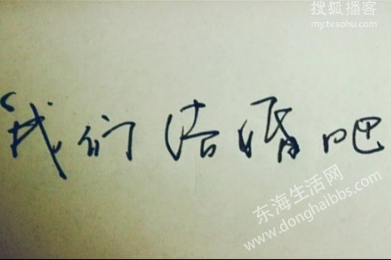 搜狐播客
my.tv.sohu.com
“我们结婚吧
东海生活网
www.donghaibbs.com